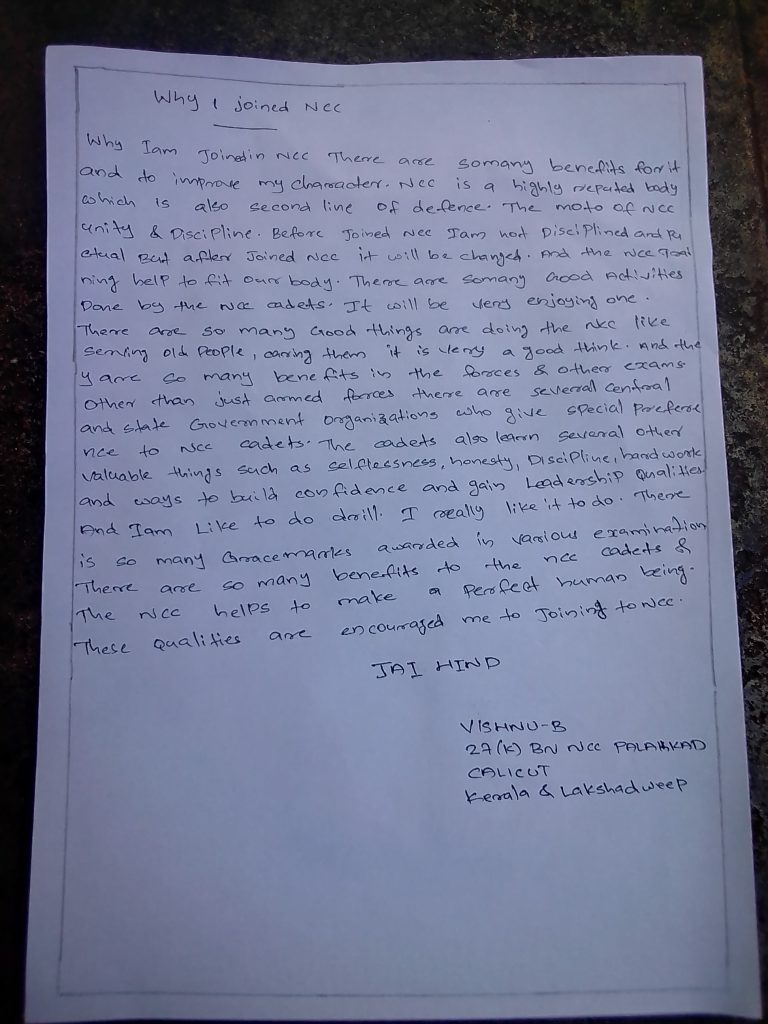 Why I joined Ncc
Why Iam Joinedin Ncc There are somany benefits for it
and to improve my character. Ncc is a highly reputed body
which is also second line of defence. The moto of Ncc
unity & Discipline. Before Joined Ncc Iam not Disciplined and Pu
ctual But after Joined Ncc it will be changed. And the Ncc Trai
ning help to fit our body. There are somany Good Activities
Done by the Ncc cadets. It will be very enjoying one.
There are so many Good things are doing the ncc like
serving old People, caring them it is very a good think. And the
y are so many benefits in the forces & other exams
Other than just armed forces there are several central
and state Government Organizations who give special Prefere
nce to Ncc cadets. The cadets also learn several other
valuable things such as selflessness, honesty, Discipline, hard work
and ways to build confidence and gain Leadership Qualities.
And Iam Like to do drill. I really like it to do. There
is so many Gracemarks awarded in various examination
There are so many benefits to the ncc cadets &
The Ncc helps to make a Perfect human being.
These Qualities are encouraged me to Joining to Ncc.
JAI HIND
VISHNU-B
27(K) BN NCC PALAKKAD
CALICUT
Kerala & Lakshadweep